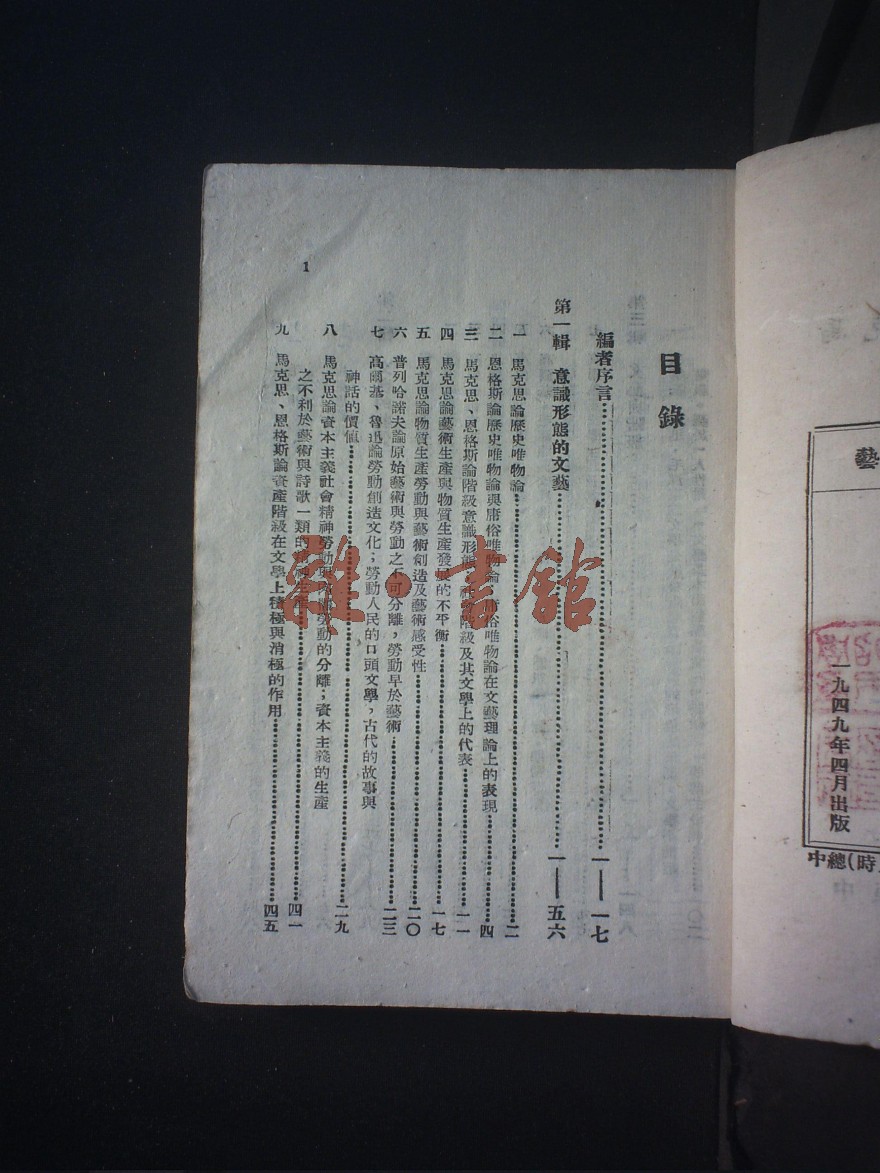 目錄
編者序言……一——一七
第一輯 意識形態的文藝……一——五六
一 馬克思論歷史唯物論……二
二 恩格斯論歷史唯物論與庸俗唯物論;庸俗唯物論在文藝理論上的表現……四
三 馬克思、恩格斯論階級意識形態,社會階級及其文學上的代表……一一
四 馬克思論藝術生產與物質生產發展的不平衡……一七
五 馬克思論物質生產勞動與藝術創造及藝術感受性……二〇
六 普列哈諾夫論原始藝術與勞動之不可分離,勞動早於藝術……二三
七 高爾基、魯迅論勞動創造文化;勞動人民的口頭文學,古代的故事與
神話的價値……二九
八 馬克思論資本主義社會精神勞動與物質勞動的分離;資本主義的生產
之不利於藝術與詩歌一類的精神生產……四一
九 馬克思、恩格斯論資產階級在文學上積極與消極的作用……四五
1
雜·書館
藝
一九四九年四月出版
中總(時